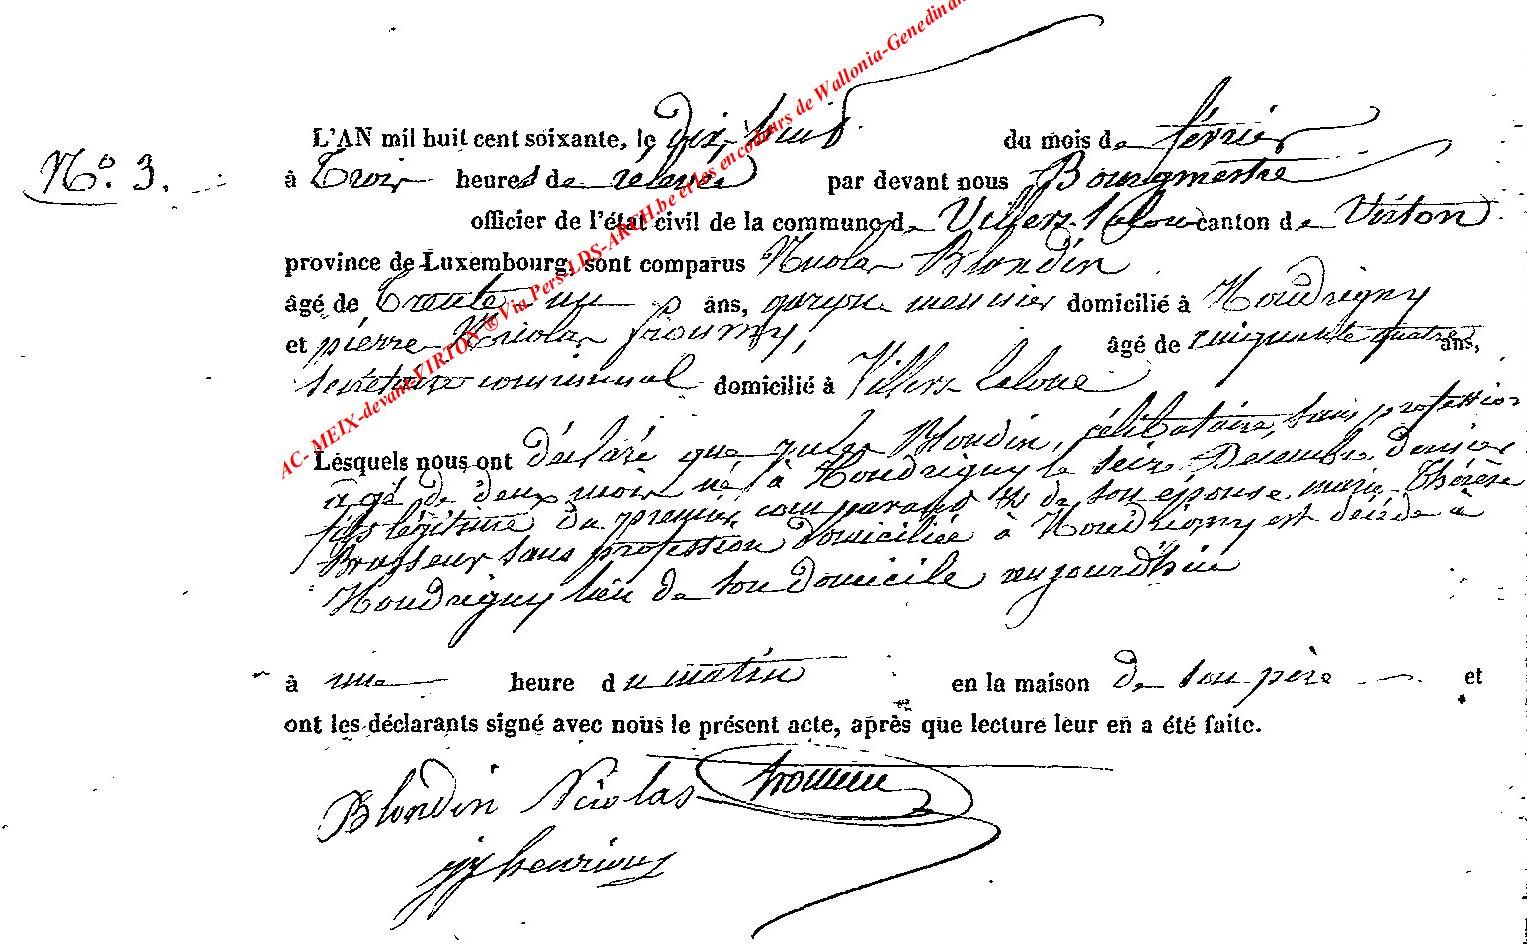 AC- MEIX-devant-VIRTON ® Via Pers-LDS-ARCH.be et les encodeurs de Wallonia-Genedinant
L'AN mil huit cent soixante, le dix huit du mois de février
N° 3.
à trois heures de relevée par devant nous Bourgmestre
officier de l'état civil de la commune de Villers-laloue canton de Virton
province de Luxembourg, sont comparus Nicolas Blondin
âgé de trente un ans, garçon meunier domicilié à Houdrigny
et pierre Nicolas âgé de cinquante quatre ans,
secrétaire communal domicilié à Villers laloue
Lesquels nous ont déclaré que jules Blondin, célibataire, sans profession
âgé de deux mois né à Houdrigny le seize Décembre dernier
fils légitime du premier comparant et de son épouse marie Thérèse
Brasseur sans profession domiciliée à Houdrigny est décédé à
Houdrigny lieu de son domicile aujourd'hui
à une heure du matin en la maison de son père et
ont les déclarants signé avec nous le présent acte, après que lecture leur en a été faite.
Blondin Nicolas